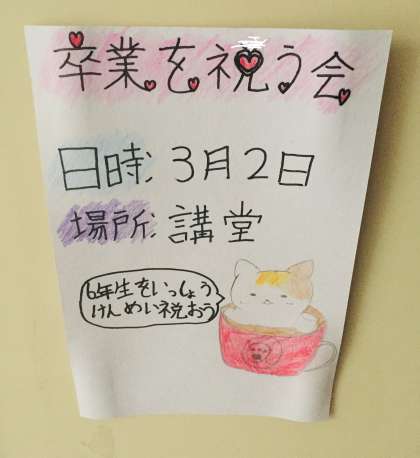 卒業を祝う会
日時:3月2日
場所:講堂
6年生をいっしょう
けんめい祝おう